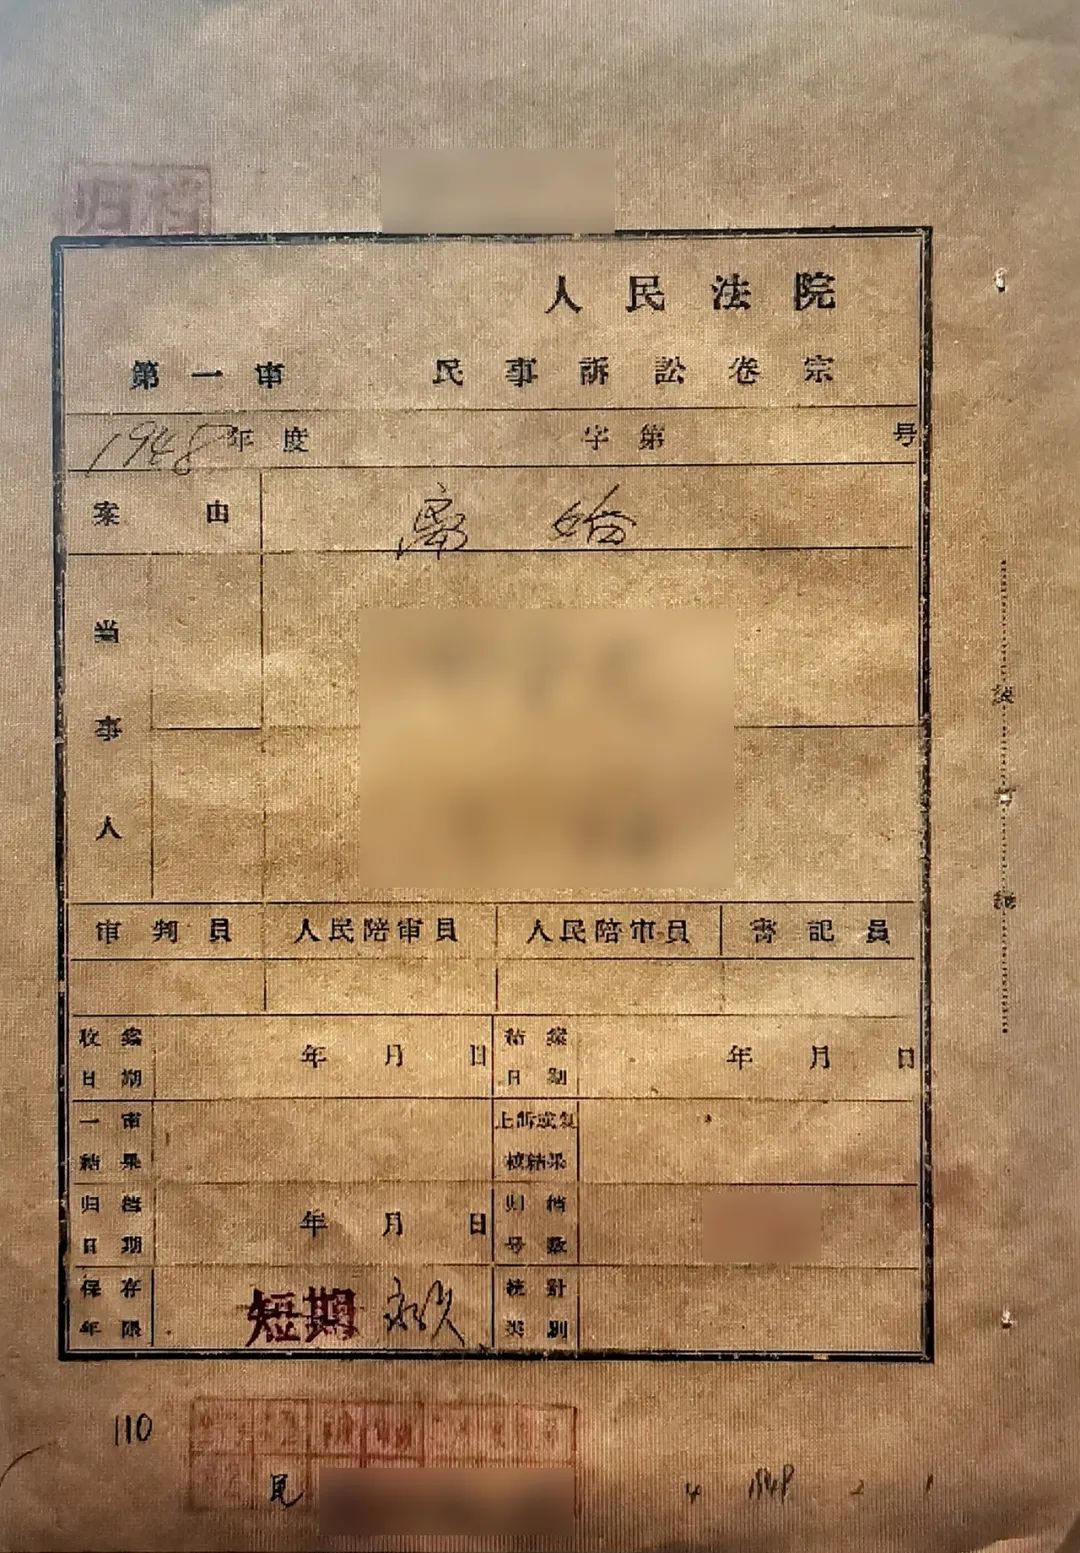 归档
人民法院
第一审 民事訴訟卷宗
1948年度 字第 号
案由 离婚
当事人
审判員 人民陪审員 人民陪审員 書記員
收案日期 年 月 日 結案日期 年 月 日
一审結果 上訴或复核結果
归档日期 年 月 日 归档号数
保存年限 短期 永久 統計类別
装 訂 綫
110
民
4 1948 2 1